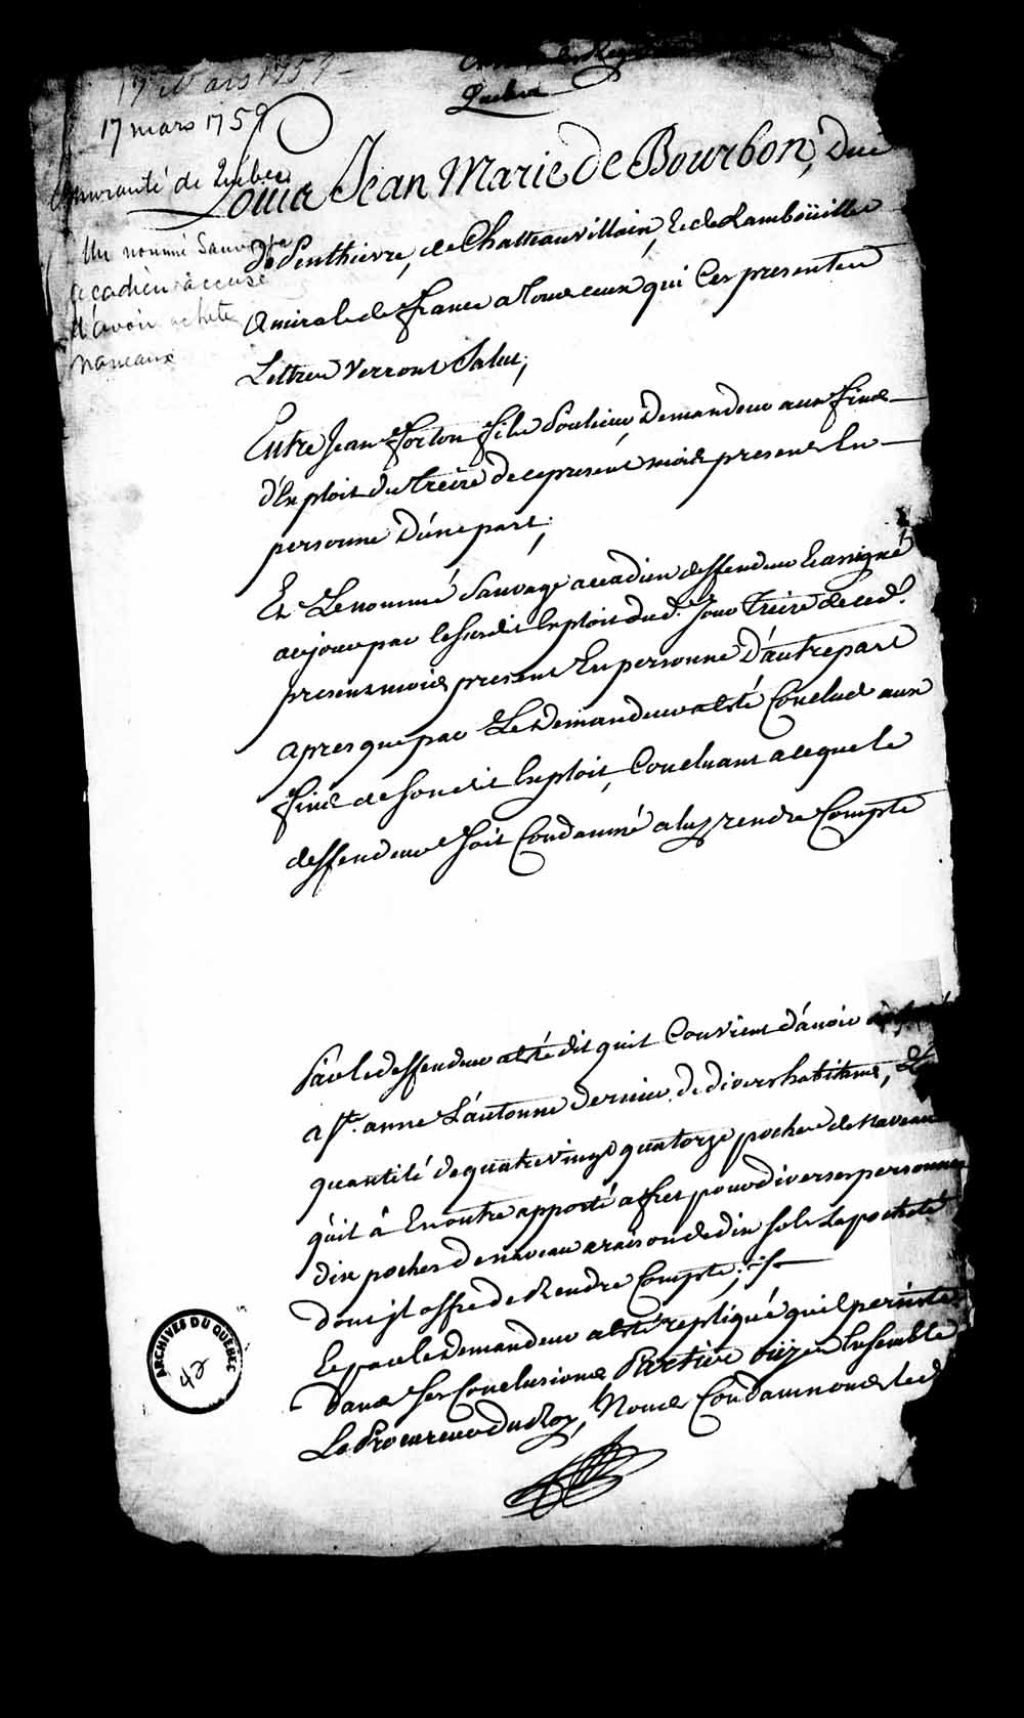 17 Mars 1759
Quebec
17 mars 1759
Amirauté de Quebec
Louis Jean Marie de Bourbon, Duc
Un nommé Sauvage
acadien accusé
d'avoir acheté
naveaux
de Penthievre, de Chatteauvillain, Et de Rambouillet
Amiral de france a tous ceux qui Ces presentes
Lettres Verront Salut;
Entre Jean fils demandeur aux fins
d'Exploit du treize de ce present mois present En
personne D'une part;
Et Le nommé Sauvage accadien deffendeur Et assigné
aujour par le susdit Exploit dud. Jour treize de ced.
present mois present En personne D'autre part
apres que par Le Demandeur a eté Conclud aux
fins de son dit Exploit, Concluant a ceque le
deffendeur soit Condamné a luy rendre Compte
Par le deffendeur a eté dit quil Convient d'avoir
a Ste. anne L'autonne dernier de divers habitans, La
quantité de quatre vingt quatorze poches de Naveau
qu'il à En outre apporté a fret pour diverses personnes
dix poches de naveau a raison de dix sols La poche
dont jl offre de Rendre Compte;
Et par le Demandeur a eté repliqué quil persiste
dans ses Conclusions Parties ouÿes Ensemble
Le Procureur du Roy, Nous Condamnons led
ARCHIVES DU QUÉBEC